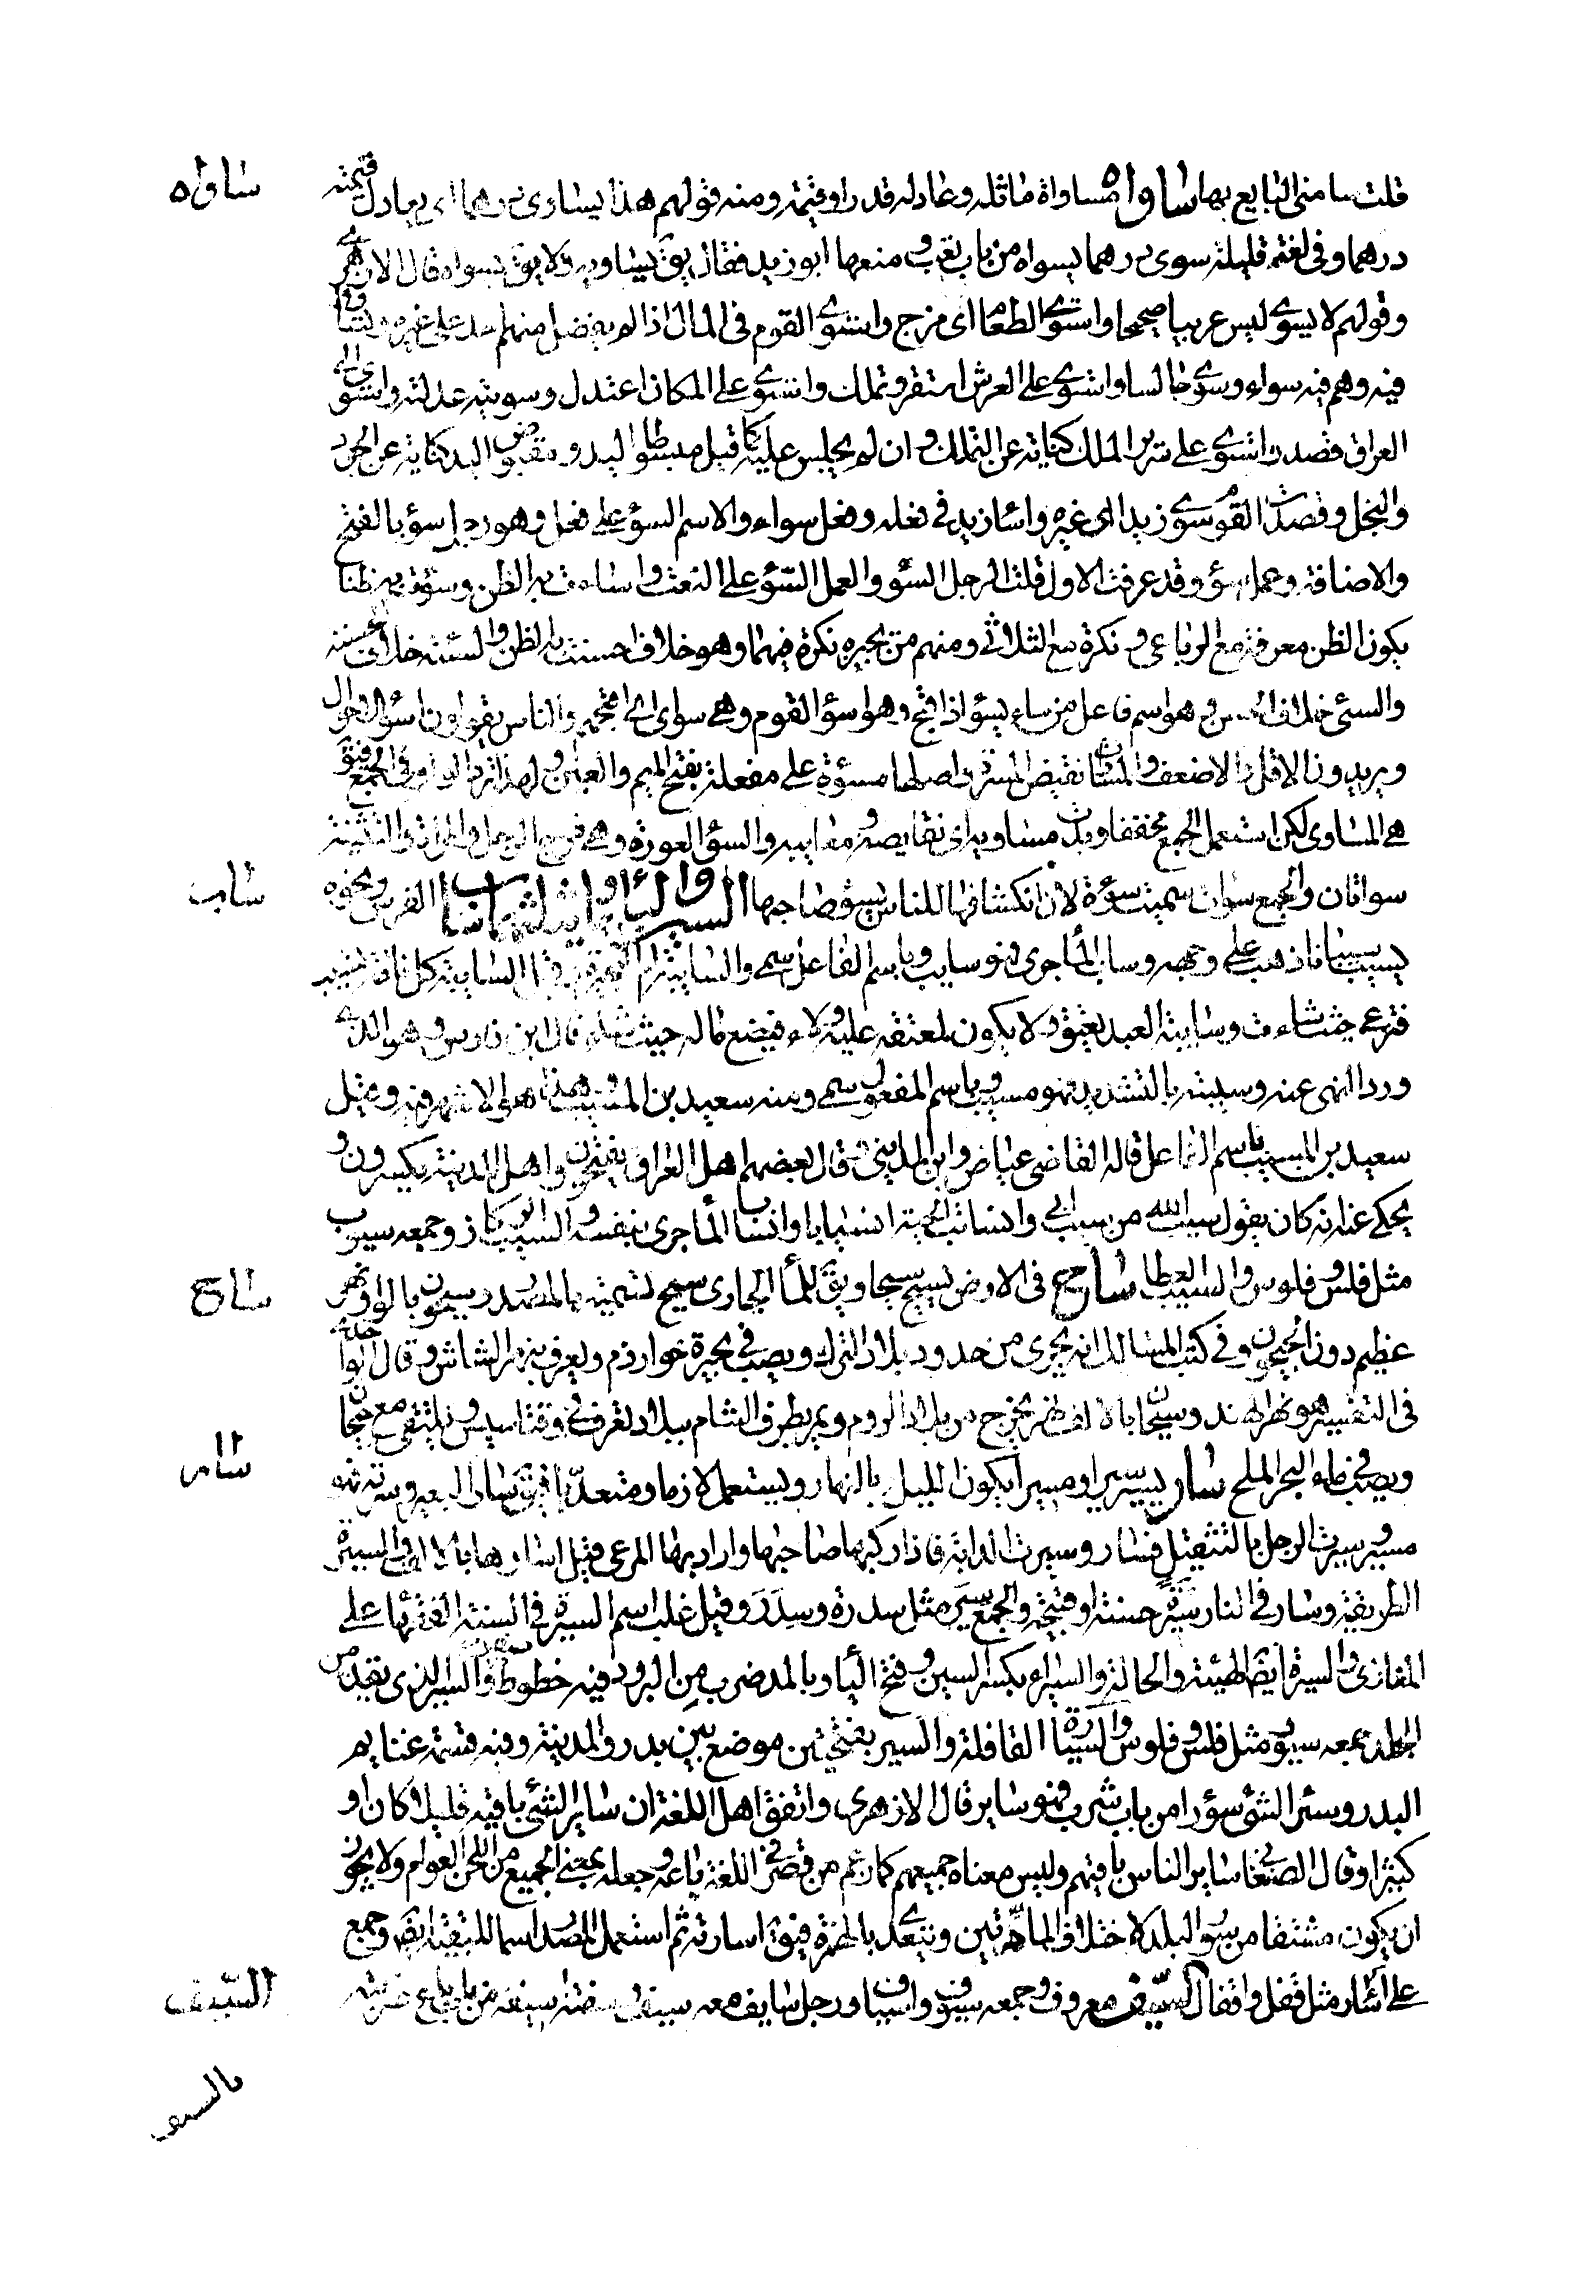 ساواه
قلت سامنى البايع بها ساواه مساواة ماثله وعادله قدرا وقيمة ومنه قولهم هذا يساوى درهما اى يعادل قيمته
درهما وفى لغة قليلة سوى درهما يسواه من باب تعب ومنعها ابو زيد فقال يق يساويه ولا يق يسواه قال الازهرى
وقولهم لا يسوى ليس عربيا صحيحا واستوى الطعام اى مزج واستوى القوم فى المال اذا لم يفضل منهم احد على غيره وتساووا
فيه وهم فيه سواء وسوى جالسا واستوى على العرش استقر وتملك واستوى على المكان اعتدل وسويته عدلته واستوى الى
العراق قصد واستوى على سرير الملك كناية عن التملك وان لم يجلس عليه كما قيل مبسوط اليد ومقبوض اليد كناية عن الجود
والبخل وقصدت القوم سوى زيد اى غيره واساء زيد فى فعله وفعل سواء والاسم السؤ على فعل وهو رجل سؤ بالفتح
والاضافة وعمل سؤ وقد عرفت الاول قلت الرجل السؤ والعمل السؤ على النعت واساءت به الظن وسؤت به ظنا
يكون الظن معرفة مع الرباعى ونكرة مع الثلاثى ومنهم من يجيزه نكرة فيهما وهو خلاف احسنت به الظن والسيئة خلاف الحسنة
والسيئ خلاف الحسن وهو اسم فاعل من ساء يسؤ اذا قبح وهو اسؤ القوم وهى سواى اى اقبحهم والناس يقولون اسؤ الاحوال
ويريدون الاقل او الاضعف والمساءة نقيض المسرة واصلها مسوءة على مفعلة بفتح الميم والعين ولهذا ترد الواو فى الجمع فيق
هى المساوى لكن استعمل الجمع مخففا وبدت مساويه اى نقايصه ومعايبه والسؤاة العورة وهى فرج الرجل والمراة والتثنية
سواتان والجمع سوات سميت سؤة لان انكشافها للناس يسؤ صاحبها السين والياء وما يثلثهما ساب الفرس ونحوه
ساب
يسيب سيبانا ذهب على وجهه وساب الماء جرى فهو سايب وباسم الفاعل سمى والسايبة ام البحيرة وقيل السايبة كل ناقة تسيب
فترعى حيث شاءت وسايبة العبد يعتق ولا يكون لمعتقه عليه ولاء فيضع ماله حيث شاء قال ابن فارس وهو الذى
ورد النهى عنه وسيبته بالتشديد فهو مسيب وباسم المفعول سمى ومنه سعيد بن المسيب وهذا هو الاشهر فيه وقيل
سعيد بن المسيب باسم الفاعل قاله القاضى عياض وابن المدينى قال بعضهم اهل العراق يفتحون واهل المدينة يكسرون و
يحكى عنه انه كان يقول سيب الله من سيب ابى وانسابت الحية انسيابا وانساب الماء جرى بنفسه والسيب الركاز وجمعه سيوب
مثل فلس وفلوس والسيب العطا ساح فى الارض يسيح سيحا ويق للماء الجارى سيح تسمية بالمصدر وسيحون بالواو نهر
ساح
عظيم دون الجيحون وفى كتب المسالك انه يجرى من حدود بلاد الترك ويصب فى بحيرة خوارزم ويعرف بنهر الشاش وقال الواحدى
فى التفسير هو نهر الهند وسيحان بالالف نهر يخرج من بلاد الروم ويمر بطرف الشام ببلاد تعرف فى وقتنا بسيس ويلتقى مع جيحان
ويصب فى ماء البحر الملح سار يسير سيرا ومسيرا يكون بالليل بالنهار ويستعمل لازما ومتعديا فيق سار البعير وسرته فهو
سار
مسير وسيرت الرجل بالتثقيل فسار وسيرت الدابة فاذا ركبها صاحبها واراد بها المرعى قيل اسارها بالالف والسيرة
الطريقة وسار فى الناس سيرة حسنة او قبيحة والجمع سير مثل سدرة وسدر وقيل غلب اسم السيرة فى السنة الفقهاء على
المغازى والسيرة ايضا الهيئة والحالة والسيراء بكسر السين وفتح الياء وبالمد ضرب من البرود فيه خطوط صفر والسير الذى يقد من
الجلد جمعه سيور مثل فلس وفلوس والسيارة القافلة والسير بفتحتين موضع بين بدر والمدينة وفيه قسمة غنايم
البدر وسئر الشئ سؤرا من باب شرب فهو ساير قال الازهرى واتفق اهل اللغة ان ساير الشئ باقيه قليلا كان او
كثيرا وقال الصغانى ساير الناس باقيهم وليس معناه جميعهم كما زعم من قصر فى اللغة باعه وجعله بمعنى الجميع من اللحن العوام ولا يجوز
ان يكون مشتقا من سور البلد لاختلاف المادتين ويتعدى بالهمزة فيق اسارته ثم استعمل المصدر اسما للبقية ايضا وجمع
على اسار مثل قفل واقفال السيف معروف وجمعه سيوف واسياف ورجل سايف معه سيف وسفته اسيفه من باب باع ضربته
السيف
بالسيف